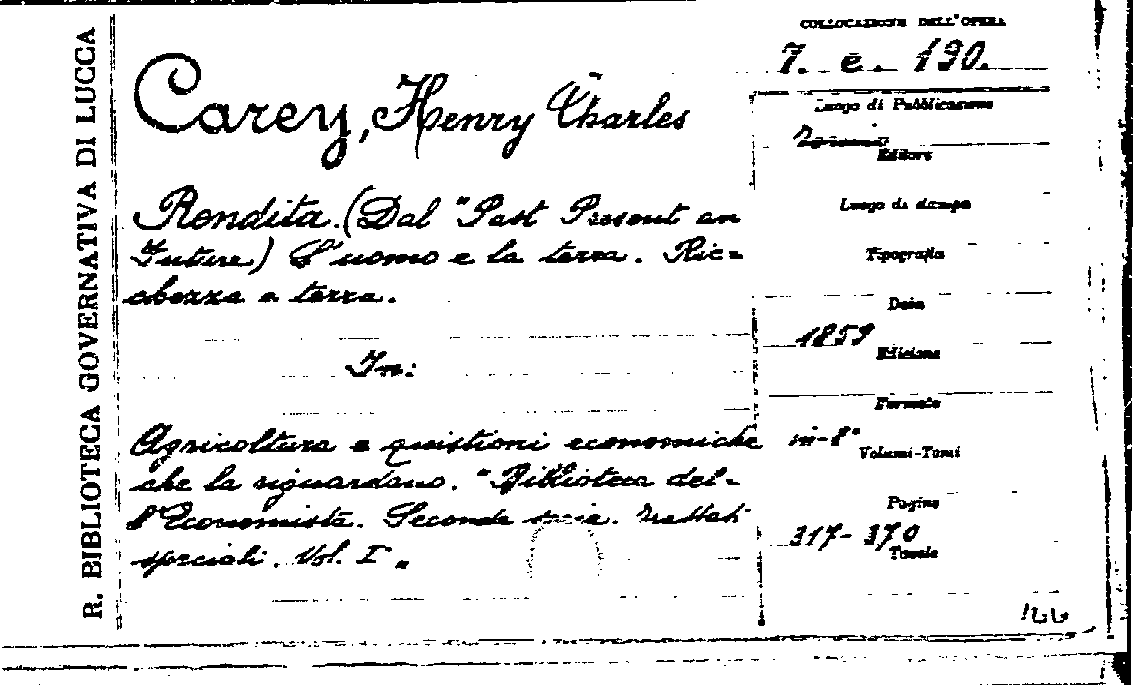 R. BIBLIOTECA GOVERNATIVA DI LUCCA
COLLOCAZIONE DELL'OPERA
7. e. 190.
Carey, Henry Charles
Luogo di Pubblicazione
Torino
Editore
Rendita. (Dal "Past Present an
Future) L'uomo e la terra. Ric=
chezza e terra.
Luogo di stampa
Tipografia
Data
1859
Edizione
In:
Formato
in-8°
Agricoltura e quistioni economiche
che la riguardano. "Biblioteca del-
l'Economista. Seconda serie. Trattati
speciali. Vol. I".
Volumi-Tomi
Pagine
317-370
Tavole
166